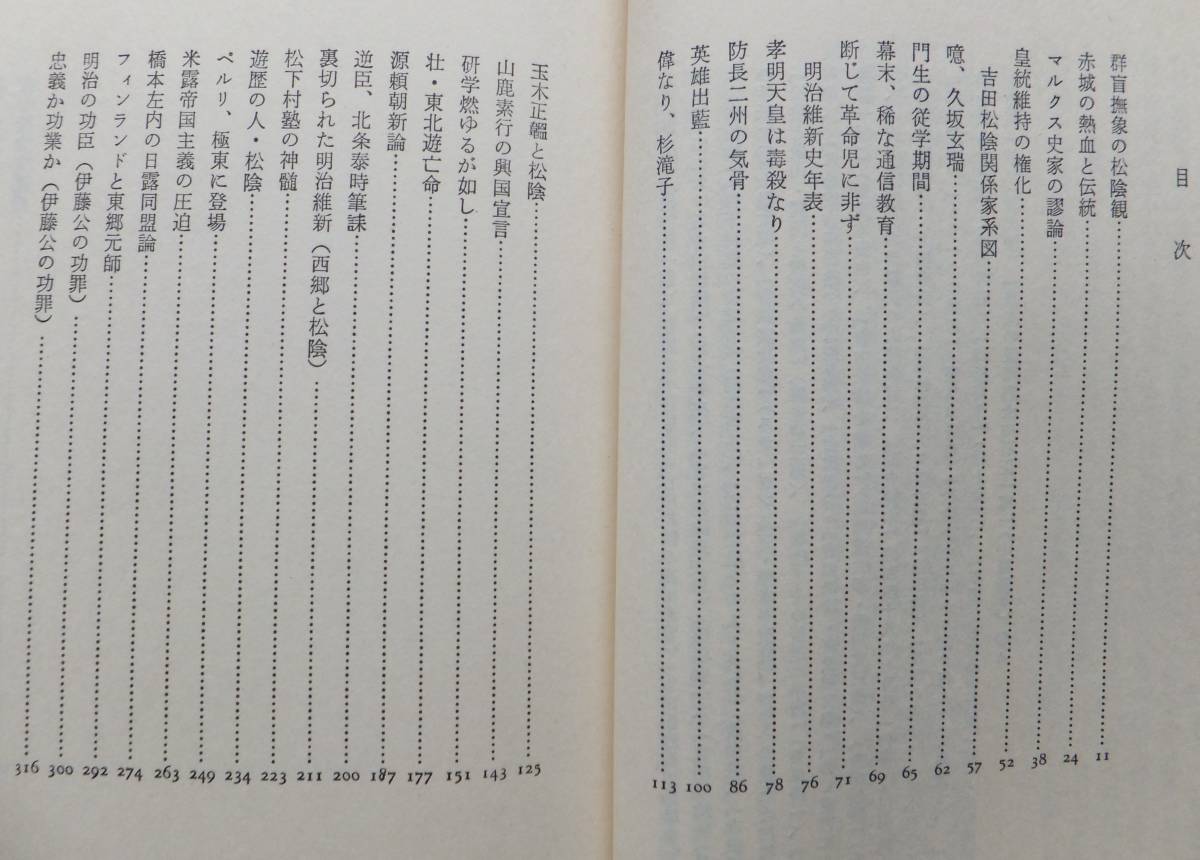 目次
群盲撫象の松陰観……11
赤城の熱血と伝統……24
マルクス史家の謬論……38
皇統維持の権化……52
吉田松陰関係家系図……57
噫、久坂玄瑞……62
門生の従学期間……65
幕末、稀な通信教育……69
断じて革命児に非ず……71
明治維新史年表……76
孝明天皇は毒殺なり……78
防長二州の気骨……86
英雄出藍……100
偉なり、杉滝子……113
玉木正韞と松陰……125
山鹿素行の興国宣言……143
研学燃ゆるが如し……151
壮・東北遊亡命……177
源頼朝新論……187
逆臣、北条泰時筆誅……200
裏切られた明治維新（西郷と松陰）……211
松下村塾の神髄……223
遊歴の人・松陰……234
ペルリ、極東に登場……249
米露帝国主義の圧迫……263
橋本左内の日露同盟論……274
フィンランドと東郷元師……292
明治の功臣（伊藤公の功罪）……300
忠義か功業か（伊藤公の功罪）……316